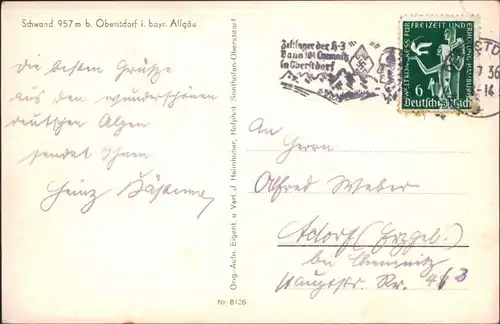 Schwand 957 m b. Oberstdorf i. bayr. Allgäu
Die besten Grüsse
aus den wunderschönen
deutschen Alpen
sendet Ihnen
Heinz
Orig.-Aufn. Eigent. u. Verl. J. Heimhuber, Hofphot. Sonthofen-Oberstdorf
Nr. 8426
Zeltlager der H-J
Bann 104 Chemnitz
in Oberstdorf
36
-14
WELTKONGRESS FÜR FREIZEIT UND ERHOLUNG HAMBURG
6
Deutsches Reich
An
Herrn
Alfred Weber
Adorf (Erzgeb.)
bei Chemnitz
Hauptstr. Nr. 463